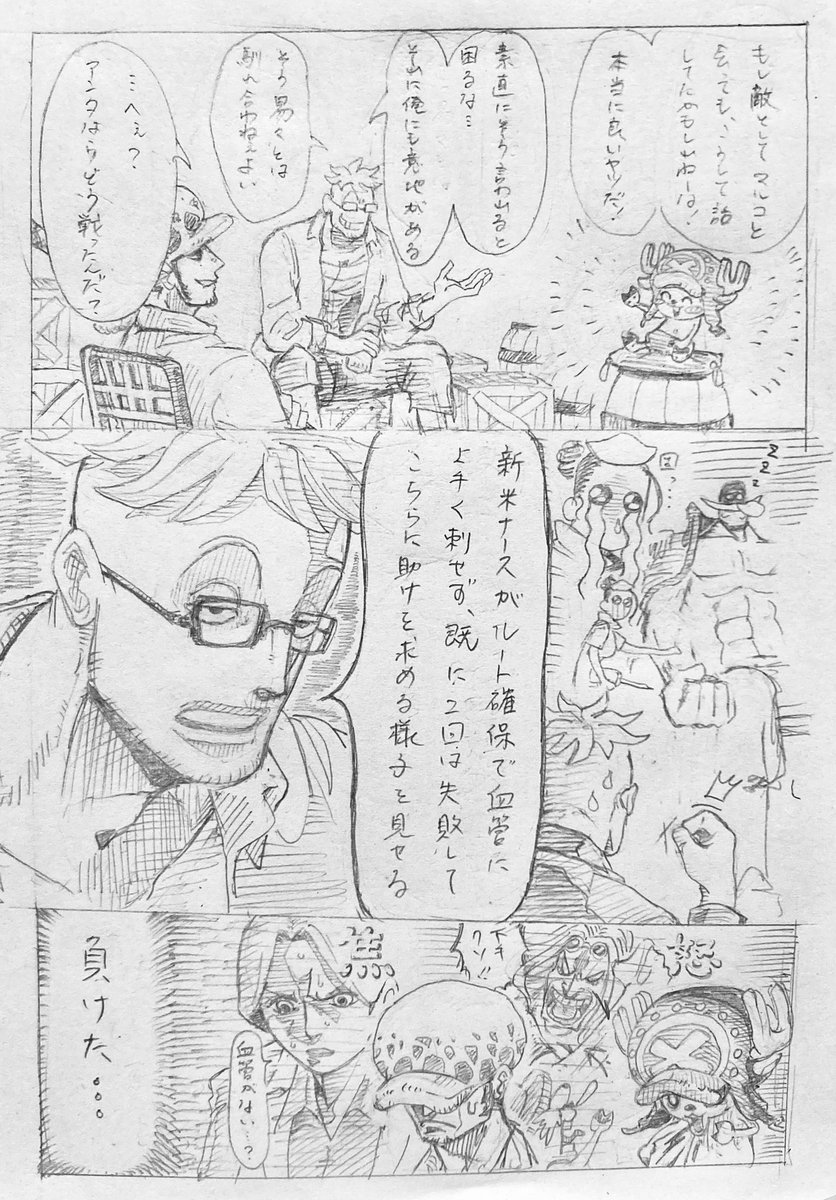 もし敵としてマルコと
会っても、こうして話
してたかもしんねーな!
本当に良いヤツだ!
素直にそう言われると
困るな…
そんなに俺にも意地がある
そう易々とは
馴れ合わねェよい
…へぇ?
アンタならどう戦ったんだ?
新米ナースがルート確保で血管に
上手く刺せず、既に2回は失敗して
こちらに助けを求める様子を見せる
zzz
怒
下手
クソ!!
焦
血管がない…?
負けた...